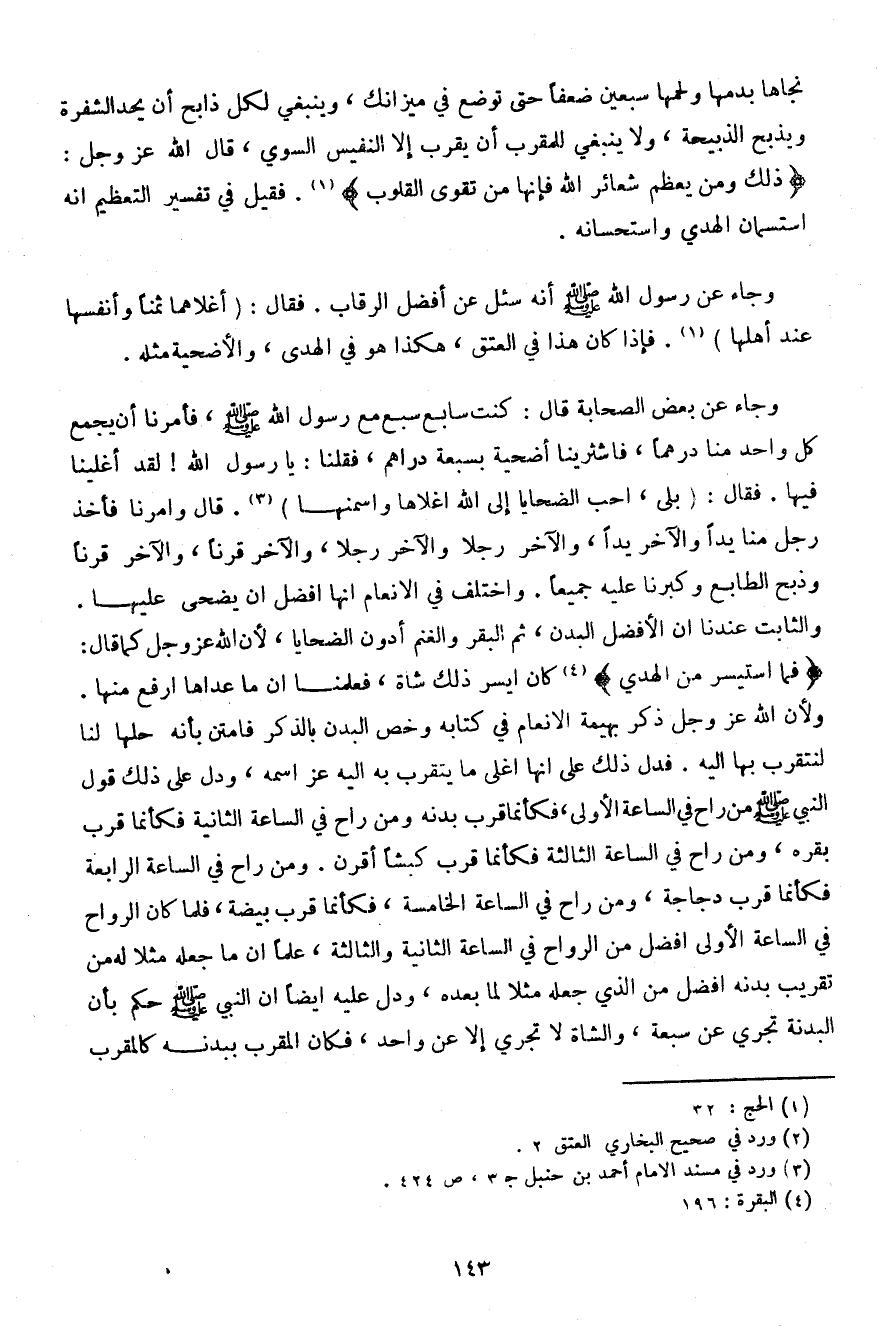 نجاها بدمها ولحمها سبعين ضعفاً حتى توضع في ميزانك ، وينبغي لكل ذابح أن يحد الشفرة
ويذبح الذبيحة ، ولا ينبغي للمقرب أن يقرب إلا النفيس السوي ، قال الله عز وجل :
﴿ ذلك ومن يعظم شعائر الله فإنها من تقوى القلوب ﴾ (١) . فقيل في تفسير التعظيم انه
استسمان الهدي واستحسانه .
وجاء عن رسول الله ﷺ أنه سئل عن أفضل الرقاب . فقال : ( أغلاهما ثمناً وأنفسها
عند أهلها ) (١) . فإذا كان هذا في العتق ، هكذا هو في الهدى ، والأضحية مثله .
وجاء عن بعض الصحابة قال : كنت سابع سبع مع رسول الله ﷺ ، فأمرنا أن يجمع
كل واحد منا درهماً ، فاشترينا أضحية بسبعة دراهم ، فقلنا : يا رسول الله ! لقد أغلينا
فيها . فقال : ( بلى ، احب الضحايا إلى الله اغلاها واسمنهـا ) (٣) . قال وامرنا فأخذ
رجل منا يداً والآخر يداً ، والآخر رجلا والآخر رجلا ، والآخر قرناً ، والآخر قرناً
وذبح الطابع وكبرنا عليه جميعاً . واختلف في الانعام انها افضل ان يضحى عليهـا .
والثابت عندنا ان الأفضل البدن ، ثم البقر والغنم أدون الضحايا ، لأن الله عز وجل كما قال :
﴿ فما استيسر من الهدي ﴾ (٤) كان ايسر ذلك شاة ، فعلمنـا ان ما عداها ارفع منها .
ولأن الله عز وجل ذكر بهيمة الانعام في كتابه وخص البدن بالذكر فامتن بأنه حلها لنا
لنتقرب بها اليه . فدل ذلك على انها اغلى ما يتقرب به اليه عز اسمه ، ودل على ذلك قول
النبي ﷺ من راح في الساعة الأولى ، فكأنما قرب بدنه ومن راح في الساعة الثانية فكأنما قرب
بقره ، ومن راح في الساعة الثالثة فكأنما قرب كبشاً أقرن . ومن راح في الساعة الرابعة
فكأنما قرب دجاجة ، ومن راح في الساعة الخامسة ، فكأنما قرب بيضة ، فلما كان الرواح
في الساعة الأولى افضل من الرواح في الساعة الثانية والثالثة ، علماً ان ما جعله مثلا له من
تقريب بدنه افضل من الذي جعله مثلا لما بعده ، ودل عليه ايضاً ان النبي ﷺ حكم بأن
البدنة تجري عن سبعة ، والشاة لا تجري إلا عن واحد ، فكان المقرب ببدنـه كالمقرب
(١) الحج : ٣٢
(٢) ورد في صحيح البخاري العتق ٢ .
(٣) ورد في مسند الامام أحمد بن حنبل جـ ٣ ، ص ٤٢٤ .
(٤) البقرة : ١٩٦
١٤٣